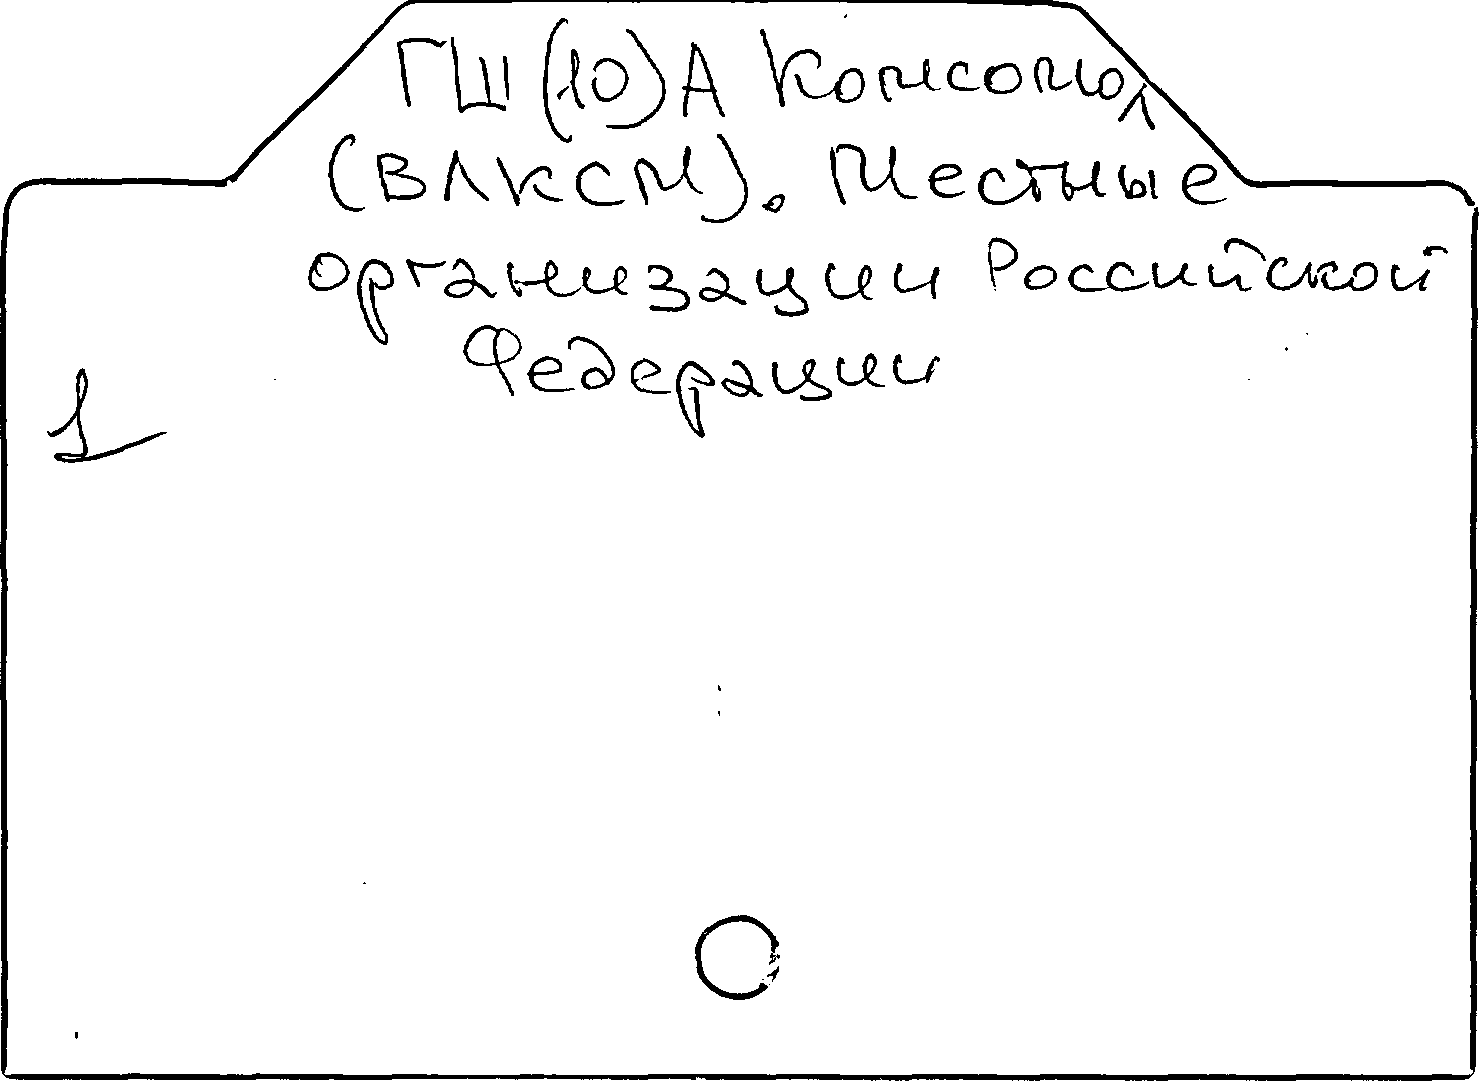 ГШ(10)А Комсомол
(ВЛКСМ). Местные
организации Российской
Федерации
1